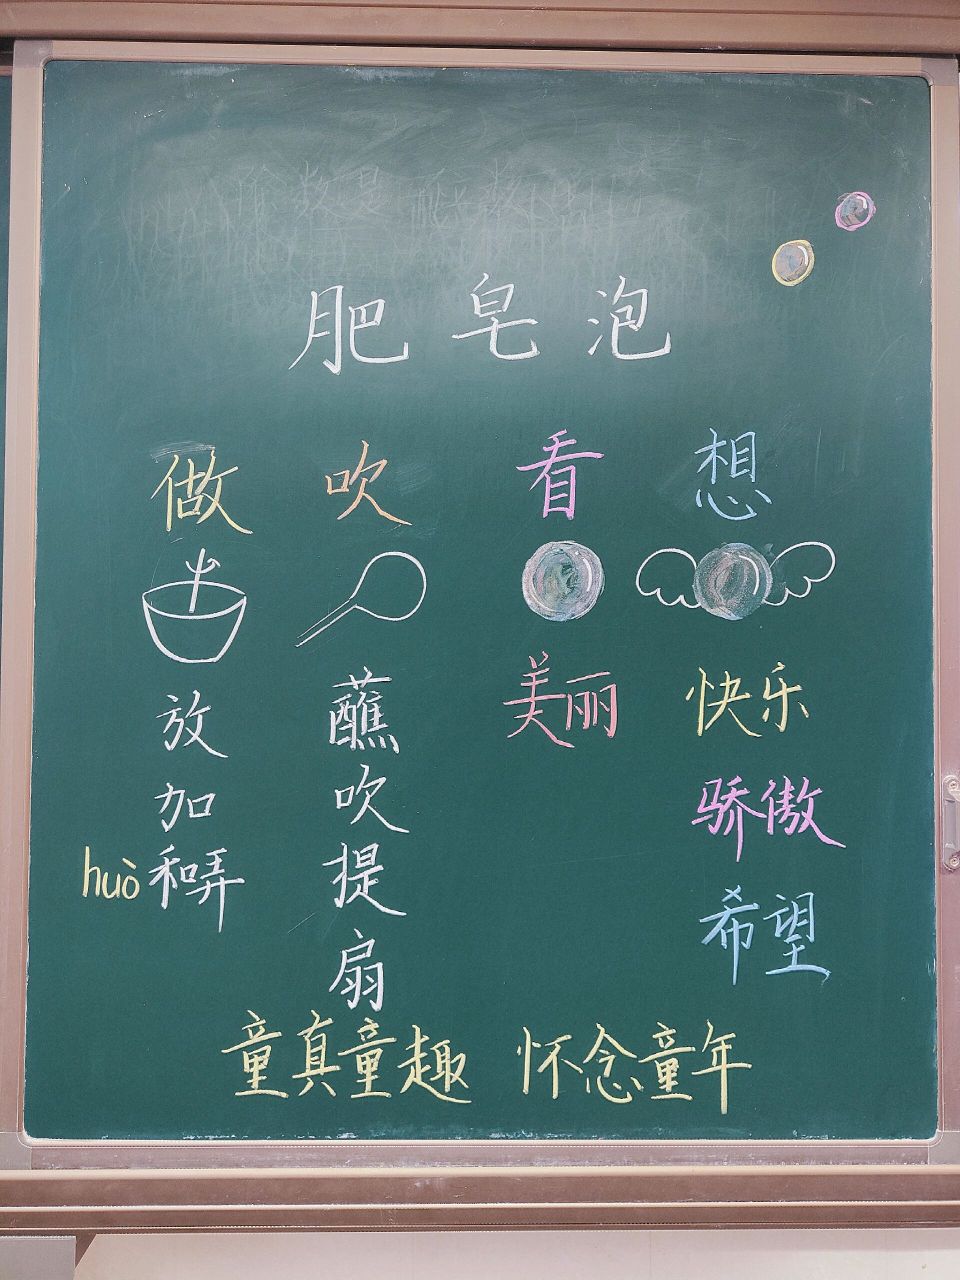 肥皂泡
做 吹 看 想
放 蘸 美丽 快乐
加 吹 骄傲
huò 和弄 提 希望
扇
童真童趣 怀念童年